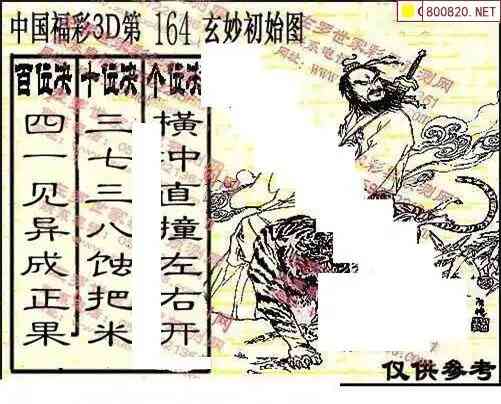 800820.NET
中国福彩3D第 164 玄妙初始图
百位决 十位决 个位决
四一见异成正果
三七三八蚀把米
橫中直撞左右开
仅供参考